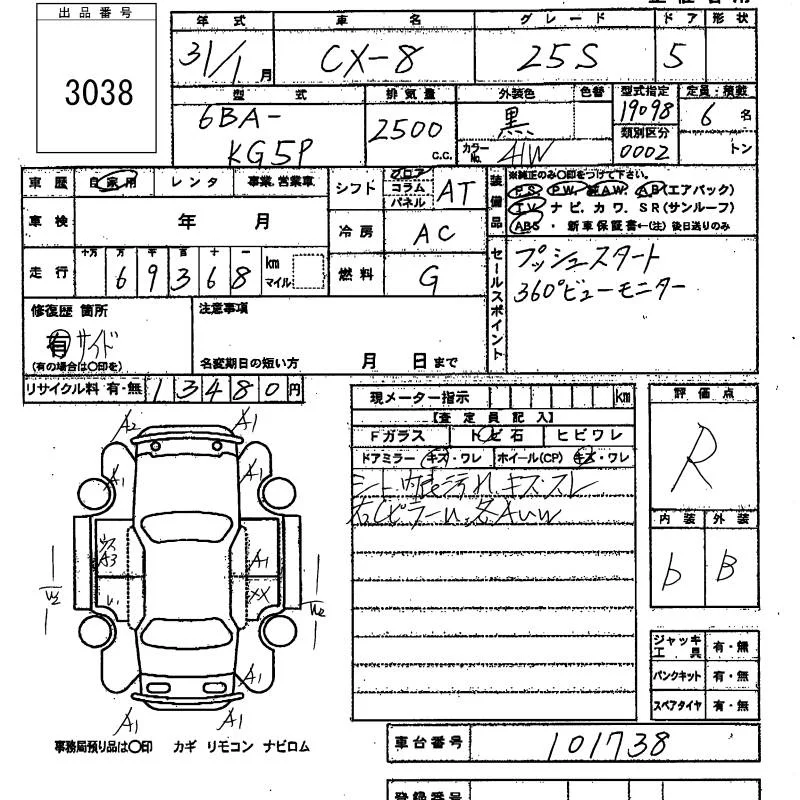 出品番号
3038
年式 車名 グレード ドア 形状
31/1月 CX-8 25S 5
型式 排気量 外装色 色替 型式指定 定員:積載
6BA-KG5P 2500 C.C. 黒 19098 6名
カラーNo. 41W 類別区分 0002 トン
車歴 自家用 レンタ 事業.営業車
シフト フロア コラム パネル AT
装備品 ※純正のみ〇印をつけて下さい。
PS PW. AW. AB(エアバック)
TV ナビ. カワ. SR(サンルーフ)
ABS ・ 新車保証書←(注) 後日送りのみ
車検 年 月
冷房 AC
走行 十万 万 千 百 十 一 km マイル
69368
燃料 G
セールスポイント
プッシュスタート
360°ビューモニター
修復歴 箇所
有 サイド
(有の場合は〇印を)
注意事項
名変期日の短い方 月 日まで
リサイクル料 有・無 13480円
現メーター指示 km
【査定員記入】
Fガラス トビ石 ヒビワレ
ドアミラー キズ・ワレ ホイール(CP) キズ・ワレ
シート、内装汚れ、キズ・スレ
右Cピラーu、各Auw
評価点
R
内装 外装
b B
ジャッキ工具 有・無
パンクキット 有・無
スペアタイヤ 有・無
A2 A1
A1 A1
A3 A1
XX
W2
A1
A1 A1
事務局預り品は〇印 カギ リモコン ナビロム
車台番号 101738
登録番号